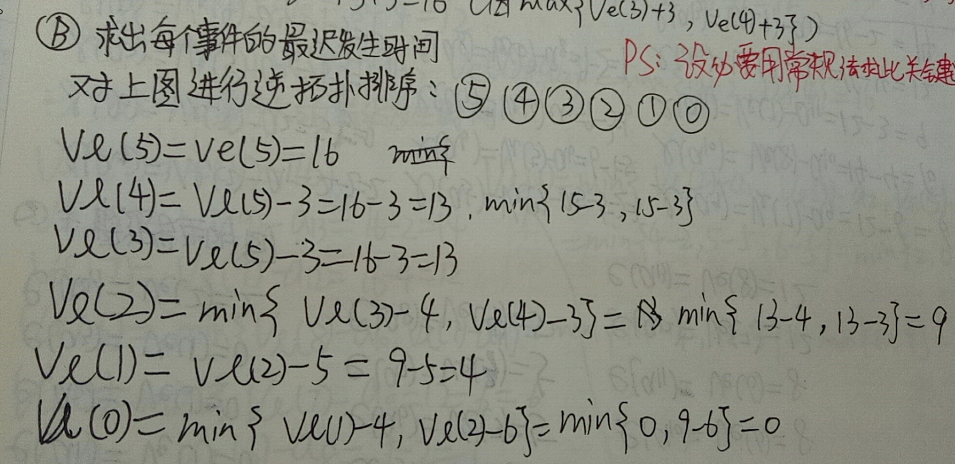 =16 max{Ve(3)+3, Ve(4)+3})
③ 求出每个事件的最迟发生时间
PS: 没必要用常规法求比关键
对上图进行逆拓扑排序: ⑤ ④ ③ ② ① ⓪
Vl(5)=Ve(5)=16 min{
Vl(4)=Vl(5)-3=16-3=13. min{15-3, 15-3}
Vl(3)=Vl(5)-3=16-3=13
Vl(2)=min{ Vl(3)-4, Vl(4)-3}= min{ 13-4, 13-3}=9
Vl(1)= Vl(2)-5 = 9-5=4
Vl(0)= min{ Vl(1)-4, Vl(2)-6}=min{0, 9-6}=0